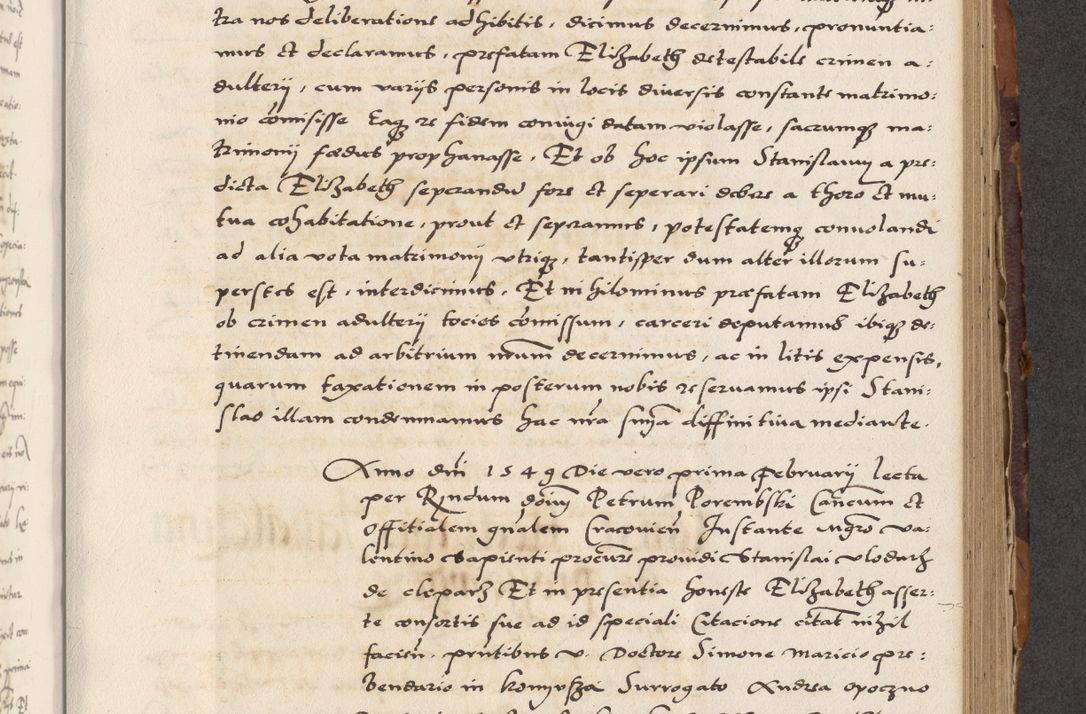 tra nos deliberations adhibitis, dicimus decernimus, pronuntia:
mus et declaramus, prefatam Elizabeth detestabile crimen a:
dulterij, cum varijs personis in locis diversis constante matrimo:
nio comisisse Eaqz re fidem coniugi datam violasse, sacrumqz ma:
trimonij fœdus prophanasse, Et ob hoc ipsum Stanislaum a pre:
dicta Elizabeth seperandum fore et seperari debere a thoro et mu:
tua cohabitatione, prout et seperamus, potestatemqz convolandi
ad alia vota matrimonij utriqz, tantisper dum alter illorum su:
perstes est, interdicimus, Et nihilominus præfatam Elizabeth
ob crimen adulterij tocies comissum, carceri deputamus ibiqz de:
tinendam ad arbitrium nrum decernimus, ac in litis expensis,
quarum taxationem in posterum nobis reservamus ipsi Stani:
slao illam condemnamus hac nra snia diffinitiva mediante.
Anno dni 1549 Die vero prima Februarij lecta
per Rndum dnum Petrum Porembski Cancum et
Offitialem gnalem Cracovien Instante mgro Va:
lentino Sapienti procure providi Stanislai Vlodarz
de cleparz Et in presentia honeste Elizabeth asser:
te consortis sue ad id speciali Citacione citat nihil
facien. pntibus v. Doctore Simone Maricio pre:
bendario in Surrogato Andrea opoczno